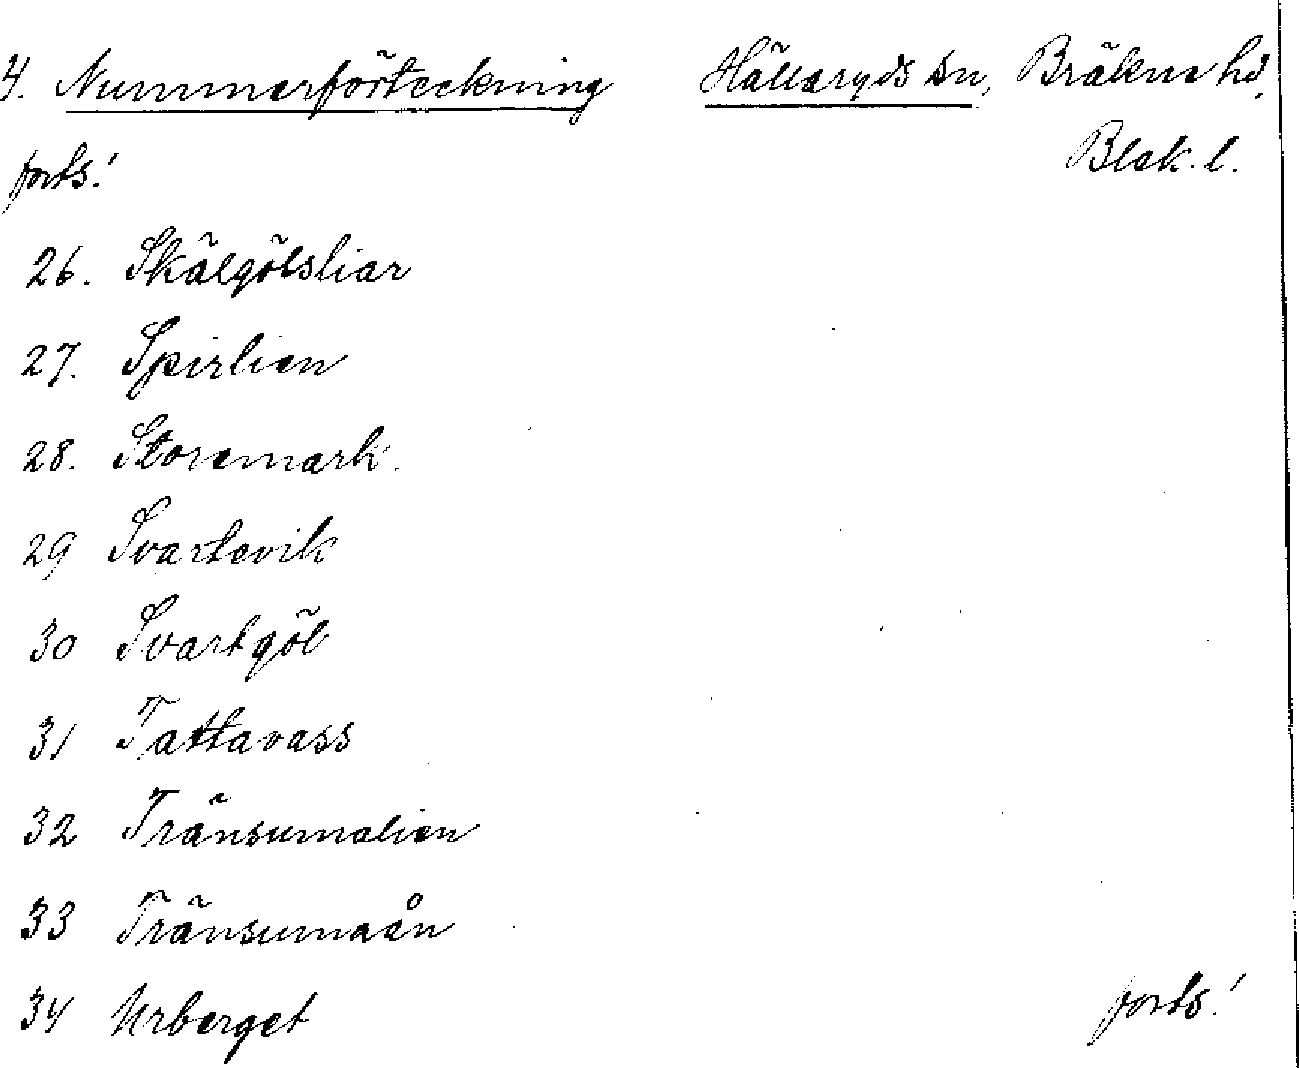 4. Nummerförteckning Hällaryds sn, Bräkne hd,
forts! Blek. l.
26. Skälgölsliar
27. Spirlien
28. Storemark.
29 Svartevik
30 Svartgöl
31 Tattavass
32 Tränsumalien
33 Tränsumaån
34 Urberget
forts!